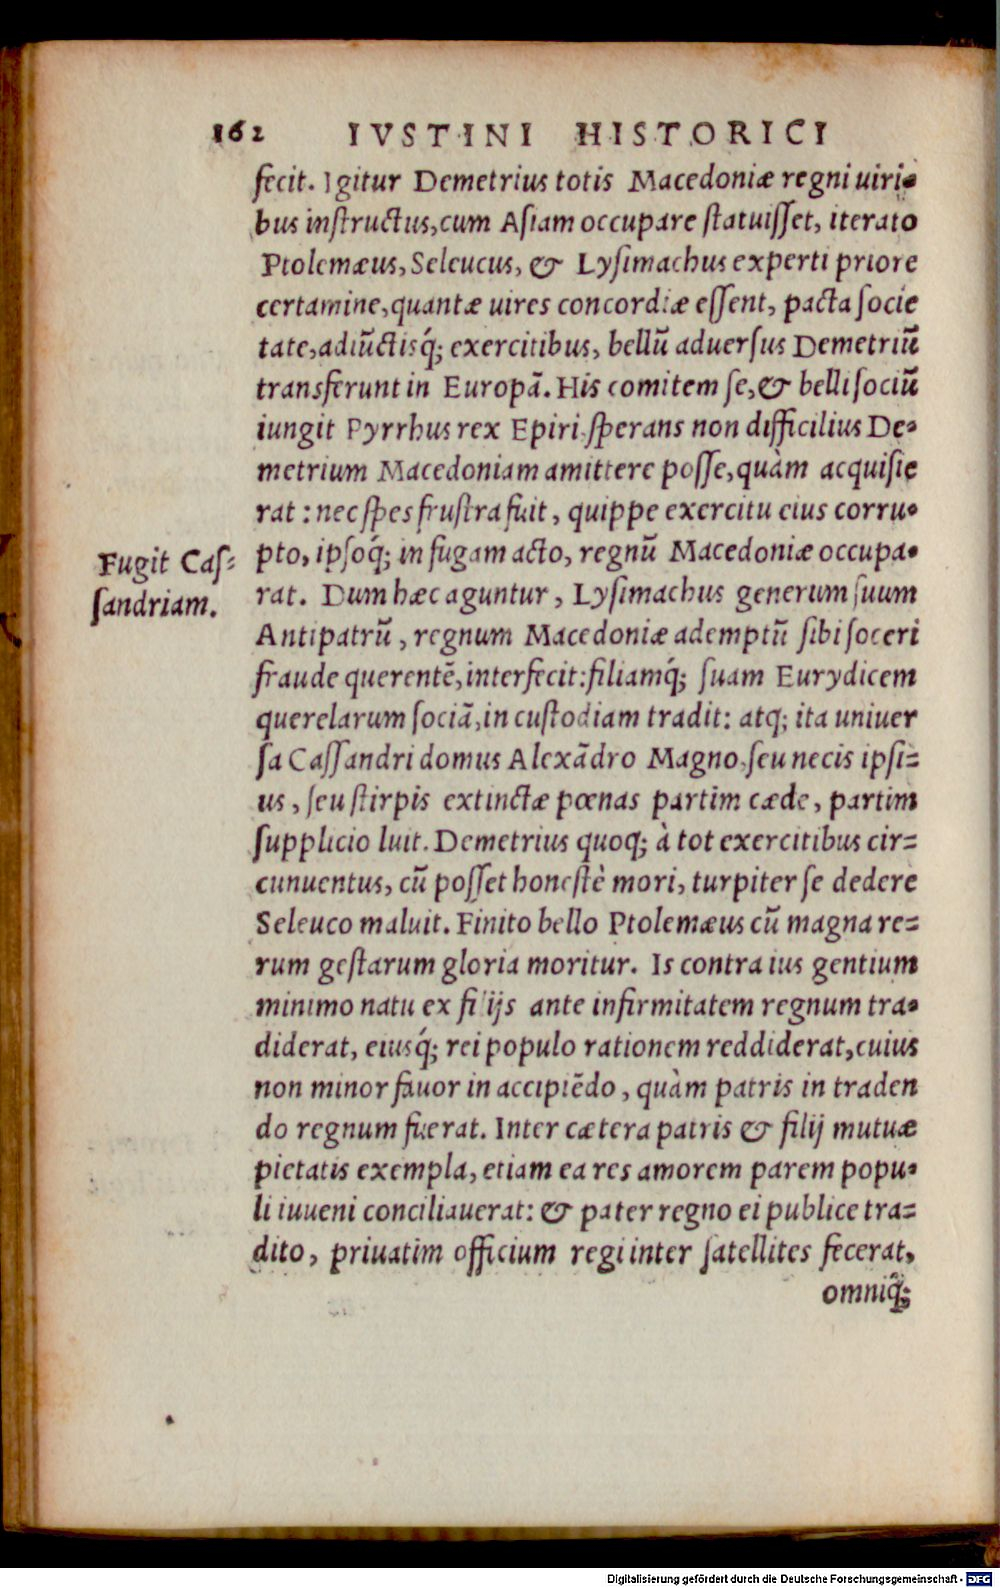 162 IVSTINI HISTORICI
fecit. Igitur Demetrius totis Macedoniæ regni uiri-
bus instructus, cum Asiam occupare statuisset, iterato
Ptolemæus, Seleucus, & Lysimachus experti priore
certamine, quantæ uires concordiæ essent, pacta socie
tate, adiūctisq́; exercitibus, bellū aduersus Demetriū
transferunt in Europā. His comitem se, & belli sociū
iungit Pyrrhus rex Epiri, sperans non difficilius De-
metrium Macedoniam amittere posse, quàm acquisie
rat: nec spes frustra fuit, quippe exercitu eius corru-
pto, ipsoq́; in fugam acto, regnū Macedoniæ occupa-
Fugit Cas-
sandriam.
rat. Dum hæc aguntur, Lysimachus generum suum
Antipatrū, regnum Macedoniæ ademptū sibi soceri
fraude querentē, interfecit: filiamq́; suam Eurydicem
querelarum sociā, in custodiam tradit: atq; ita uniuer
sa Cassandri domus Alexādro Magno, seu necis ipsi-
us, seu stirpis extinctæ pœnas partim cæde, partim
supplicio luit. Demetrius quoq; à tot exercitibus cir-
cunuentus, cū posset honestè mori, turpiter se dedere
Seleuco maluit. Finito bello Ptolemæus cū magna re-
rum gestarum gloria moritur. Is contra ius gentium
minimo natu ex filijs ante infirmitatem regnum tra-
diderat, eiusq́; rei populo rationem reddiderat, cuius
non minor fauor in accipiēdo, quàm patris in traden
do regnum fuerat. Inter cætera patris & filij mutuæ
pietatis exempla, etiam ea res amorem parem popu-
li iuueni conciliauerat: & pater regno ei publice tra-
dito, priuatim officium regi inter satellites fecerat,
omniq́;
Digitalisierung gefördert durch die Deutsche Forschungsgemeinschaft - DFG